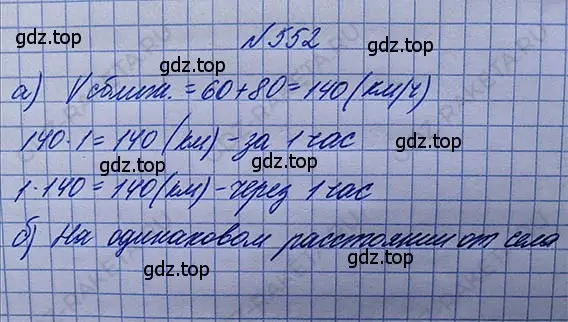 №552
а) Vсближ. = 60+80=140(км/ч)
140·1=140 (км)-за 1 час
1·140=140(км)-через 1 час
б) На одинаковом расстоянии от села
gdz.top
gdz.top
gdz.top
gdz.top
gdz.top
gdz.top
gdz.top
gdz.top